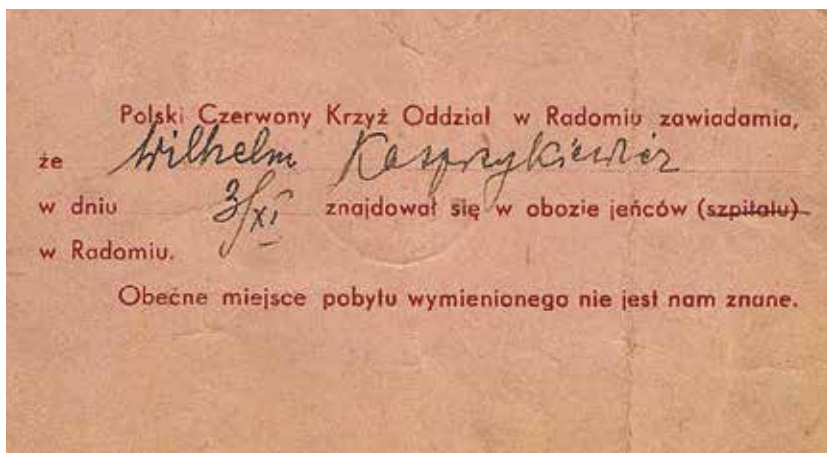 Polski Czerwony Krzyż Oddział w Radomiu zawiadamia,
że Wilhelm Kasprzykiewicz
w dniu 3/XI znajdował się w obozie jeńców (szpitalu)
w Radomiu.
Obecne miejsce pobytu wymienionego nie jest nam znane.